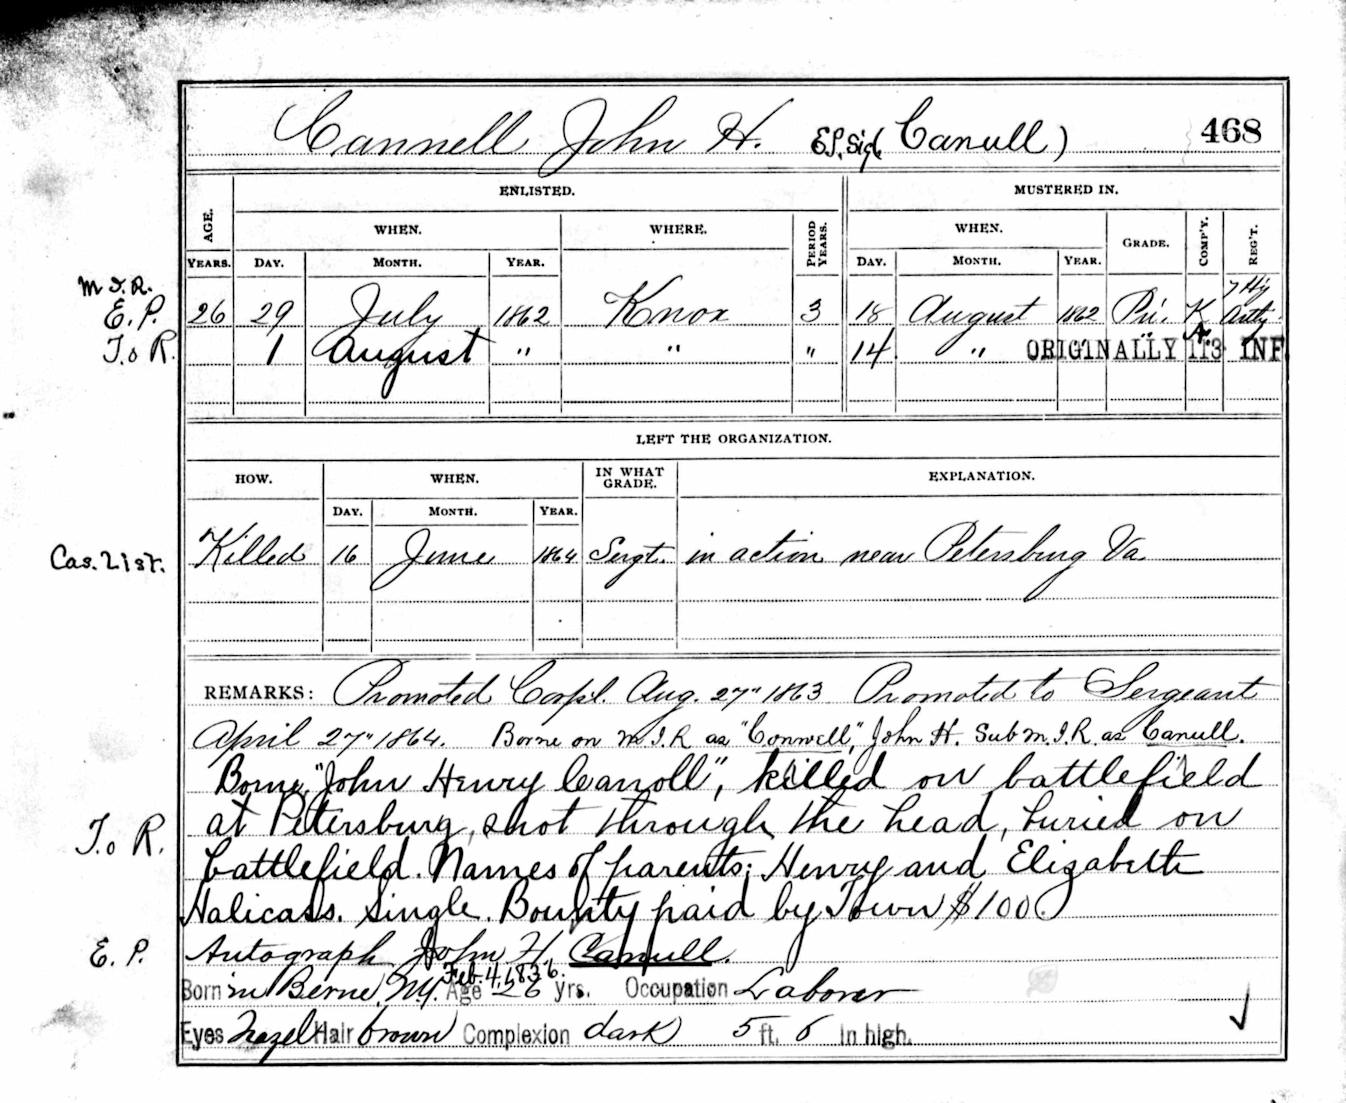 Cannell John H. (E.P. Sig. Canull) 468
ENLISTED. MUSTERED IN.
AGE. WHEN. WHERE. PERIOD YEARS. WHEN. GRADE. COMP'Y. REG'T.
YEARS. DAY. MONTH. YEAR. DAY. MONTH. YEAR.
M.I.R.
E.P. 26 29 July 1862 Knox 3 18 August 1862 Pri. K 7 Hy Artly.
T.o R. 1 August " " " 14 " " A. "
ORIGINALLY 113 INF
LEFT THE ORGANIZATION.
HOW. WHEN. IN WHAT GRADE. EXPLANATION.
DAY. MONTH. YEAR.
Cas. List. Killed 16 June 1864 Sergt. in action near Petersburg Va
REMARKS: Promoted Corpl. Aug. 27" 1863. Promoted to Sergeant
April 27" 1864. Borne on M.I.R. as "Connell", John H. Sub M.I.R. as Canull.
T.o R. Borne, "John Henry Canoll", killed on battlefield
at Petersburg, shot through the head, buried on
battlefield. Names of parents; Henry and Elizabeth
Single. Bounty paid by Town $100
E.P. Autograph John H. Canull.
Born in Berne, N.Y. Feb. 4, 1836. Age 26 yrs. Occupation Laborer
Eyes hazel Hair brown Complexion dark 5 ft. 6 in high.